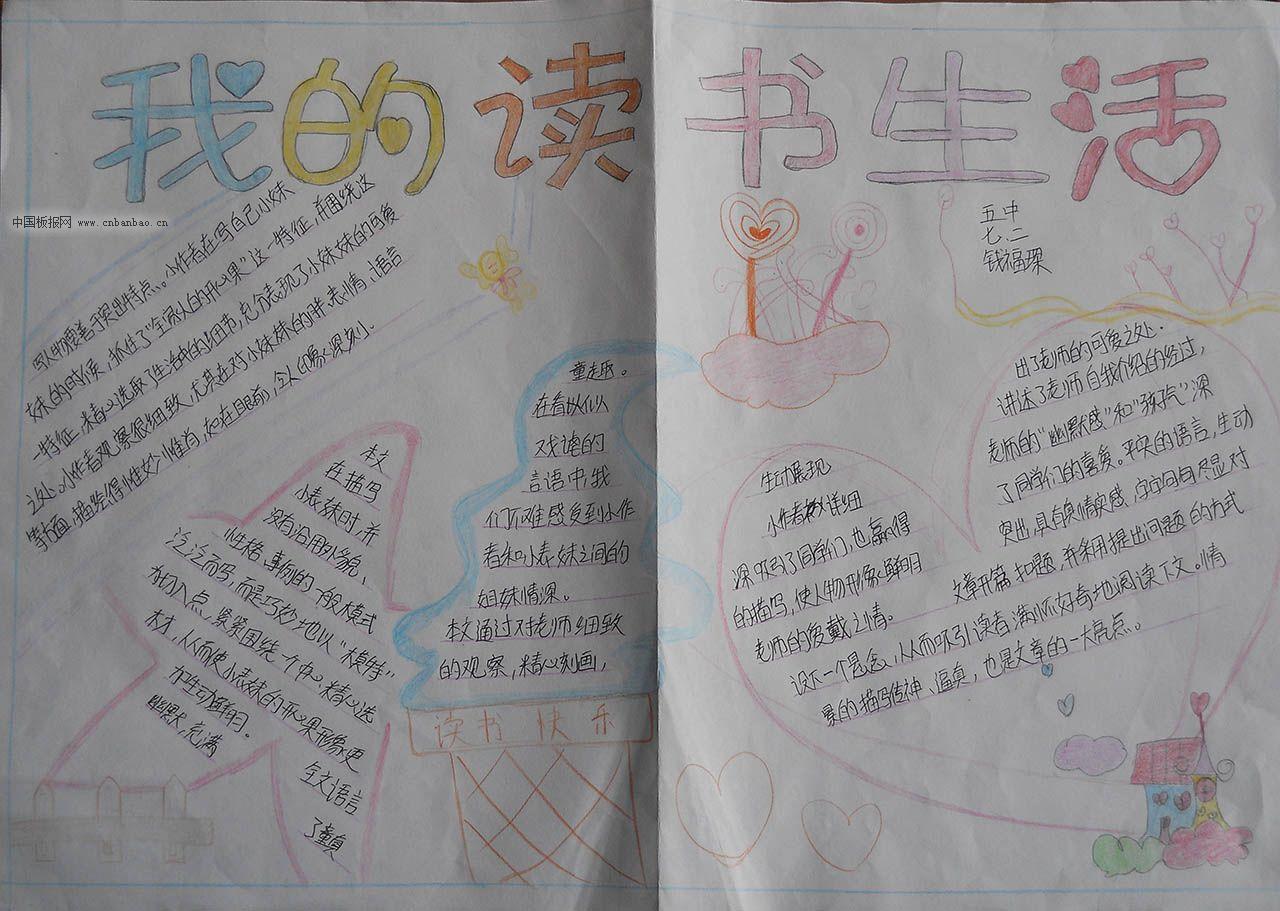 我的读书生活
中国板报网 www.cnbanbao.cn
五中
七.二
钱福琛
写人物要善于突出特点。小作者在写自己小妹
妹的时候，抓住了“全家人的开心果”这一特征，并围绕这
一特征，精心选取了生活中的细节，充分表现了小妹妹的可爱
之处。小作者观察很细致，尤其在对小妹妹的胖、表情、语言
等方面，描绘得惟妙惟肖，如在眼前，令人印象深刻。
本文
在描写
小表妹时，并
没有沿用外貌、
性格、事例的一般模式
泛泛而写，而是巧妙地以“模特”
为切入点，紧紧围绕一个中心，精心选
材，从而使小表妹的开心果形象更
加生动鲜明。
全文语言
幽默，充满
了童真
童趣。
在看似
戏谑的
言语中，我
们不难感受到小作
者和小表妹之间的
姐妹情深。
本文通过对老师细致
的观察，精心刻画，
读书快乐
生动展现
出了老师的可爱之处.
小作者详细
讲述了老师自我介绍的经过，
老师的“幽默感”和“孩子气”深
深吸引了同学们，也赢得
了同学们的喜爱。平实的语言，生动
的描写，使人物形象鲜明
突出，具有真情实感，字字句句尽显对
老师的爱戴之情。
文章开篇扣题，并采用提出问题的方式
设下一个悬念，从而吸引读者满怀好奇地阅读下文。情
景的描写传神、逼真，也是文章的一大亮点。